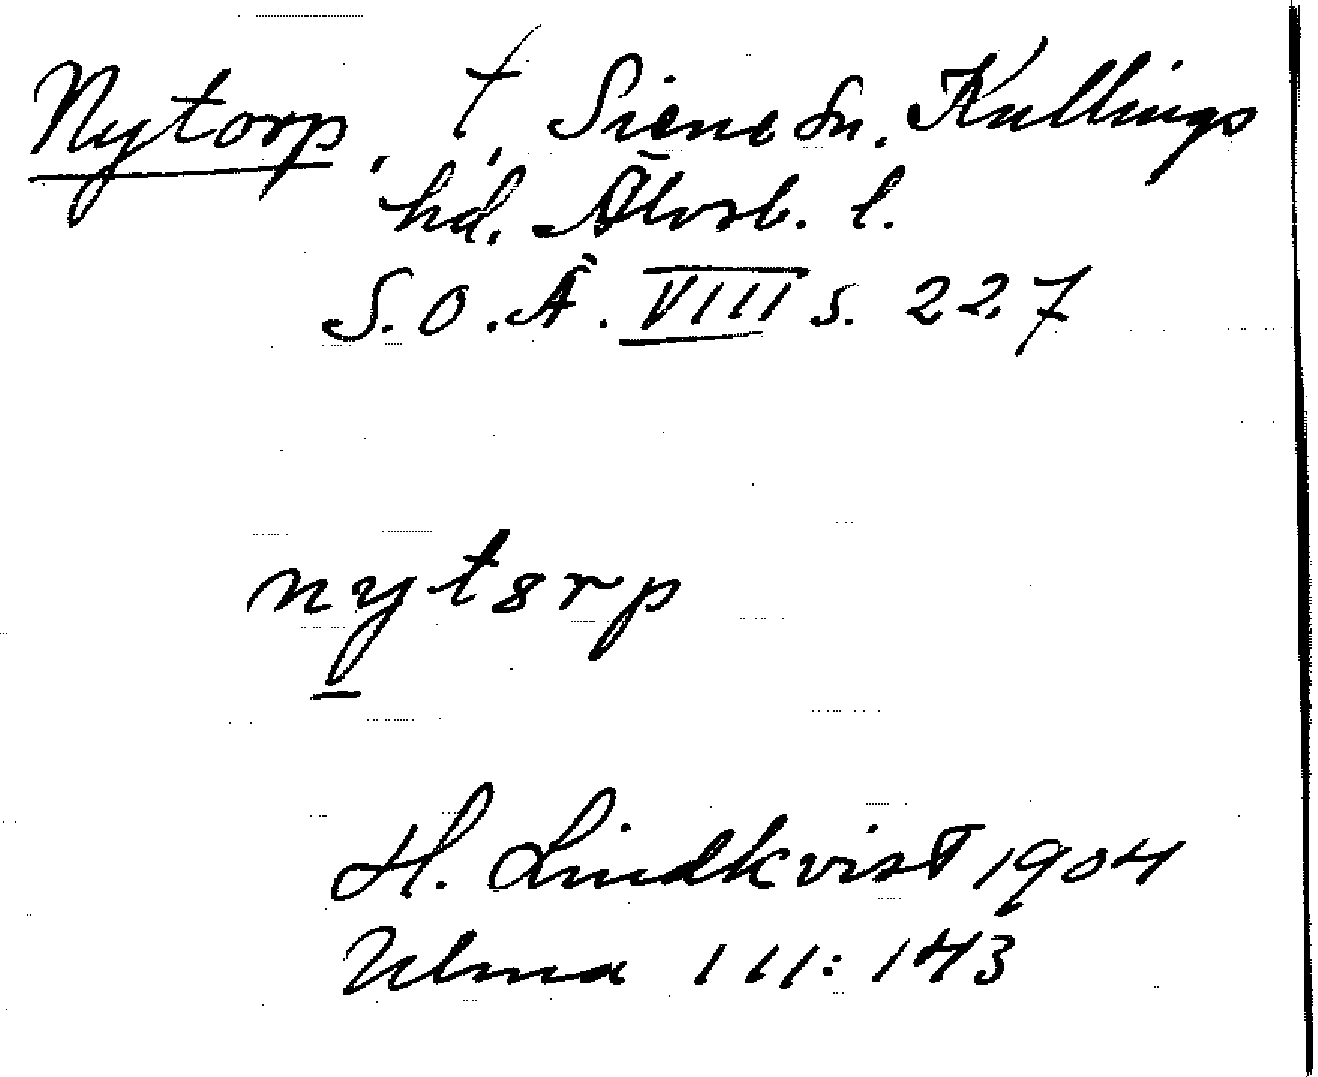 Nytorp, t, Siene sn. Kullings
hd. Älvsb. l.
S.O.Ä. VIII s. 227
nyt8rp
H. Lindkvist 1904
Ulma 111:143